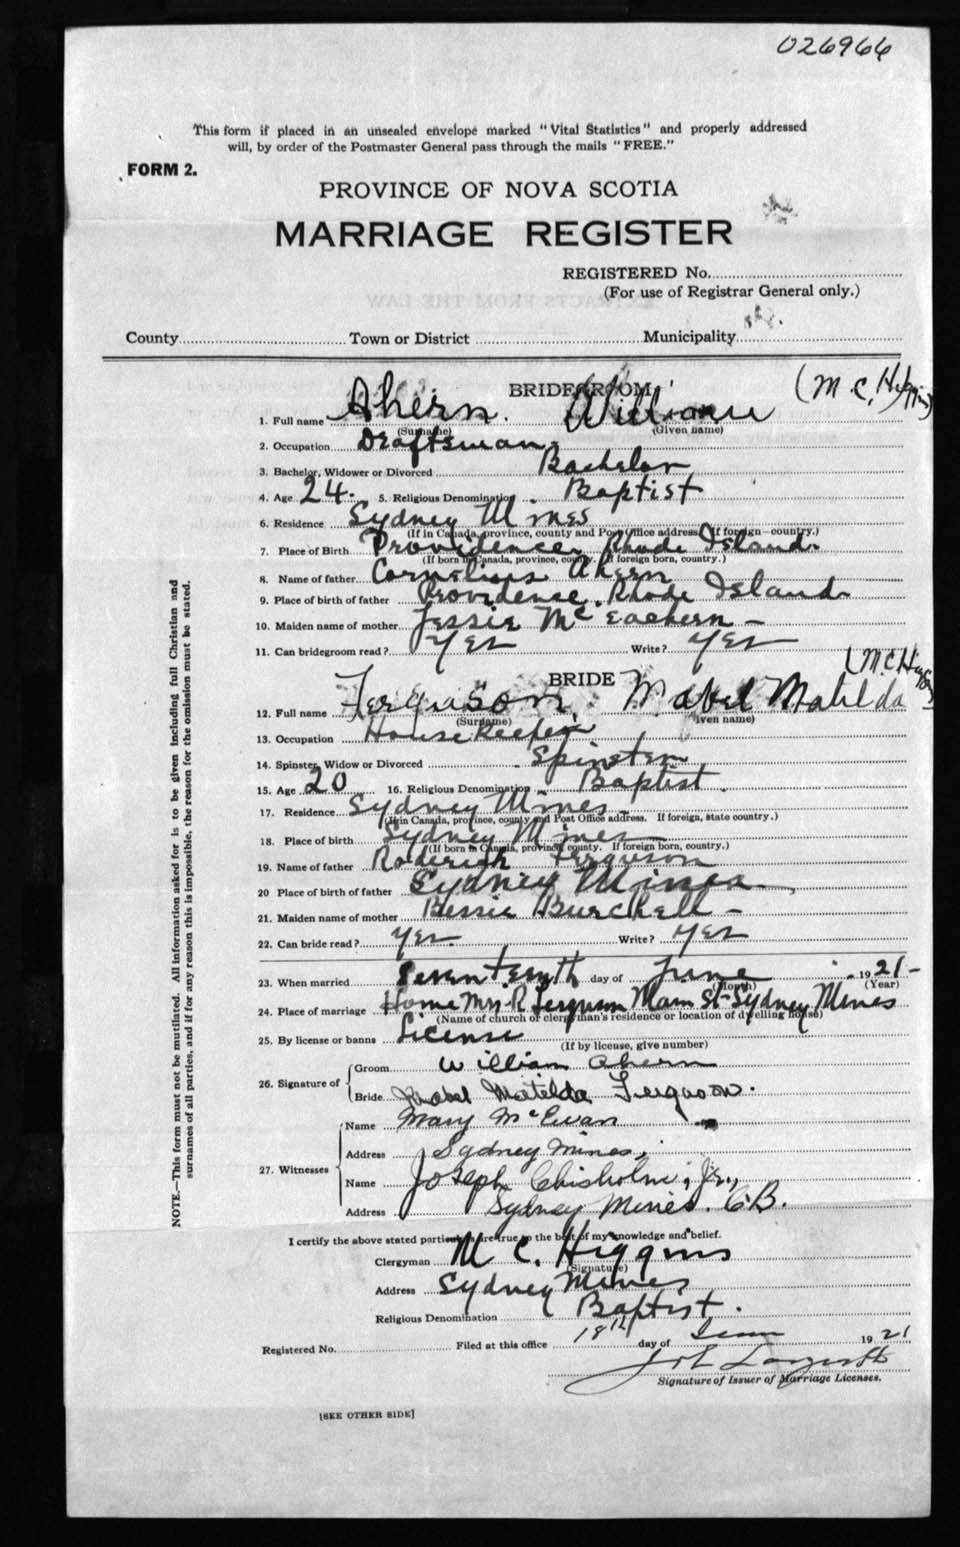 026966
This form if placed in an unsealed envelope marked "Vital Statistics" and properly addressed
will, by order of the Postmaster General pass through the mails "FREE."
FORM 2.
PROVINCE OF NOVA SCOTIA
MARRIAGE REGISTER
REGISTERED No.
(For use of Registrar General only.)
County Town or District Municipality
BRIDEGROOM (M. C. Higgins)
1. Full name Ahern. William
(Surname) (Given name)
2. Occupation Draftsman
3. Bachelor, Widower or Divorced Bachelor
4. Age 24. 5. Religious Denomination Baptist
6. Residence Sydney Mines
(If in Canada, province, county and Post Office address. If foreign—country.)
7. Place of Birth Providence, Rhode Island.
(If born in Canada, province, county. If foreign born, country.)
8. Name of father Cornelius Ahern
9. Place of birth of father Providence. Rhode Island.
10. Maiden name of mother Jessie McEachern —
11. Can bridegroom read? Yes Write? Yes
BRIDE (M. C. Higgins)
12. Full name Ferguson. Mabel Matilda
(Surname) (Given name)
13. Occupation House Keeper
14. Spinster, Widow or Divorced Spinster
15. Age 20 16. Religious Denomination Baptist.
17. Residence Sydney Mines.
(If in Canada, province, county and Post Office address. If foreign, state country.)
18. Place of birth Sydney Mines
(If born in Canada, province, county. If foreign born, country.)
19. Name of father Roderick Ferguson
20 Place of birth of father Sydney Mines.
21. Maiden name of mother Bessie Burchell —
22. Can bride read? Yes. Write? Yes
23. When married Seventeenth day of June 1921-
(Month) (Year)
24. Place of marriage Home Mrs. R Ferguson Main St- Sydney Mines
(Name of church or clergyman's residence or location of dwelling house)
25. By license or banns License
(If by license, give number)
26. Signature of Groom William Ahern
Bride Mabel Matilda Ferguson.
27. Witnesses Name Mary McEwan
Address Sydney Mines,
Name Joseph Chisholm, Jr.,
Address Sydney Mines. C.B.
I certify the above stated particulars are true to the best of my knowledge and belief.
Clergyman M. C. Higgins
(Signature)
Address Sydney Mines
Religious Denomination Baptist.
Registered No. Filed at this office 18th day of June 1921
Signature of Issuer of Marriage Licenses.
[SEE OTHER SIDE]
NOTE.—This form must not be mutilated. All information asked for is to be given including full Christian and
surnames of all parties, and if for any reason this is impossible, the reason for the omission must be stated.